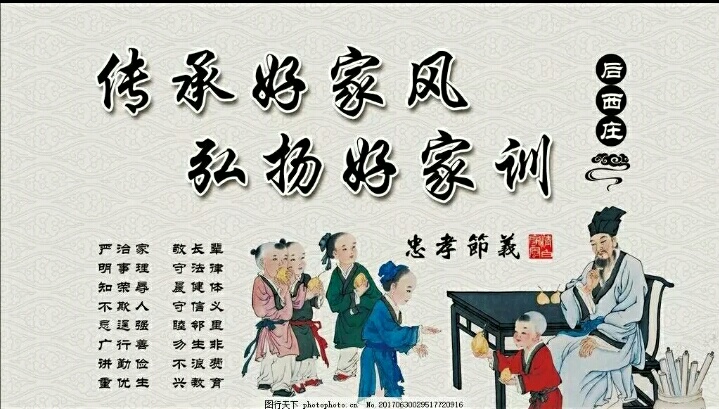 传承好家风
弘扬好家训
后西庄
忠孝節義
严治家 敬长辈
明事理 守法律
知荣辱 晨健体
不欺人 守信义
忌逞强 睦邻里
广行善 勿生非
讲勤俭 不浪费
重优生 兴教育
图行天下 photophoto.cn No.20170630029517720916